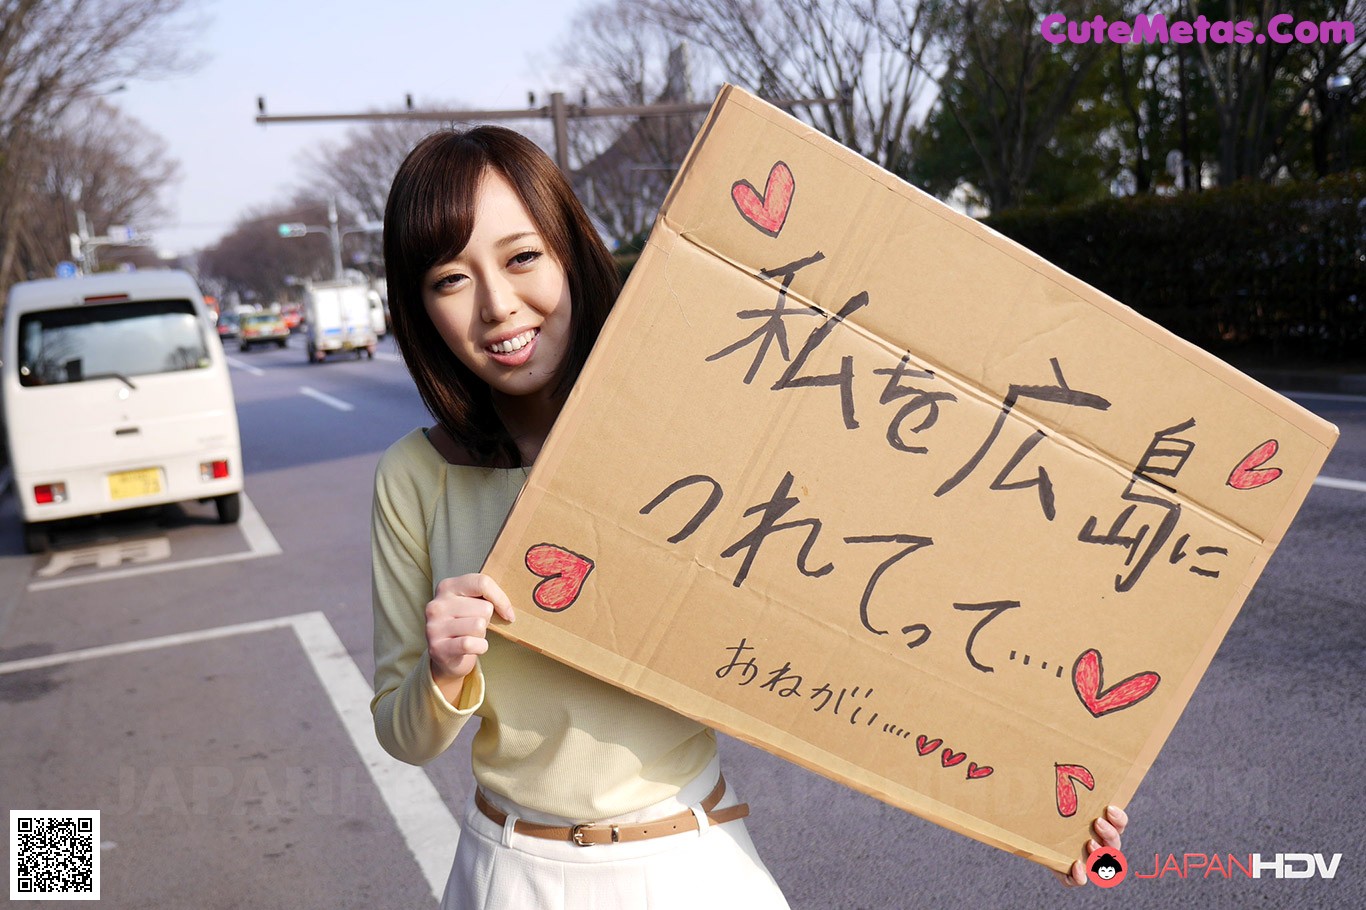 CuteMetas.Com
私を広島に
つれてって....
おねがい....
JAPANHDV